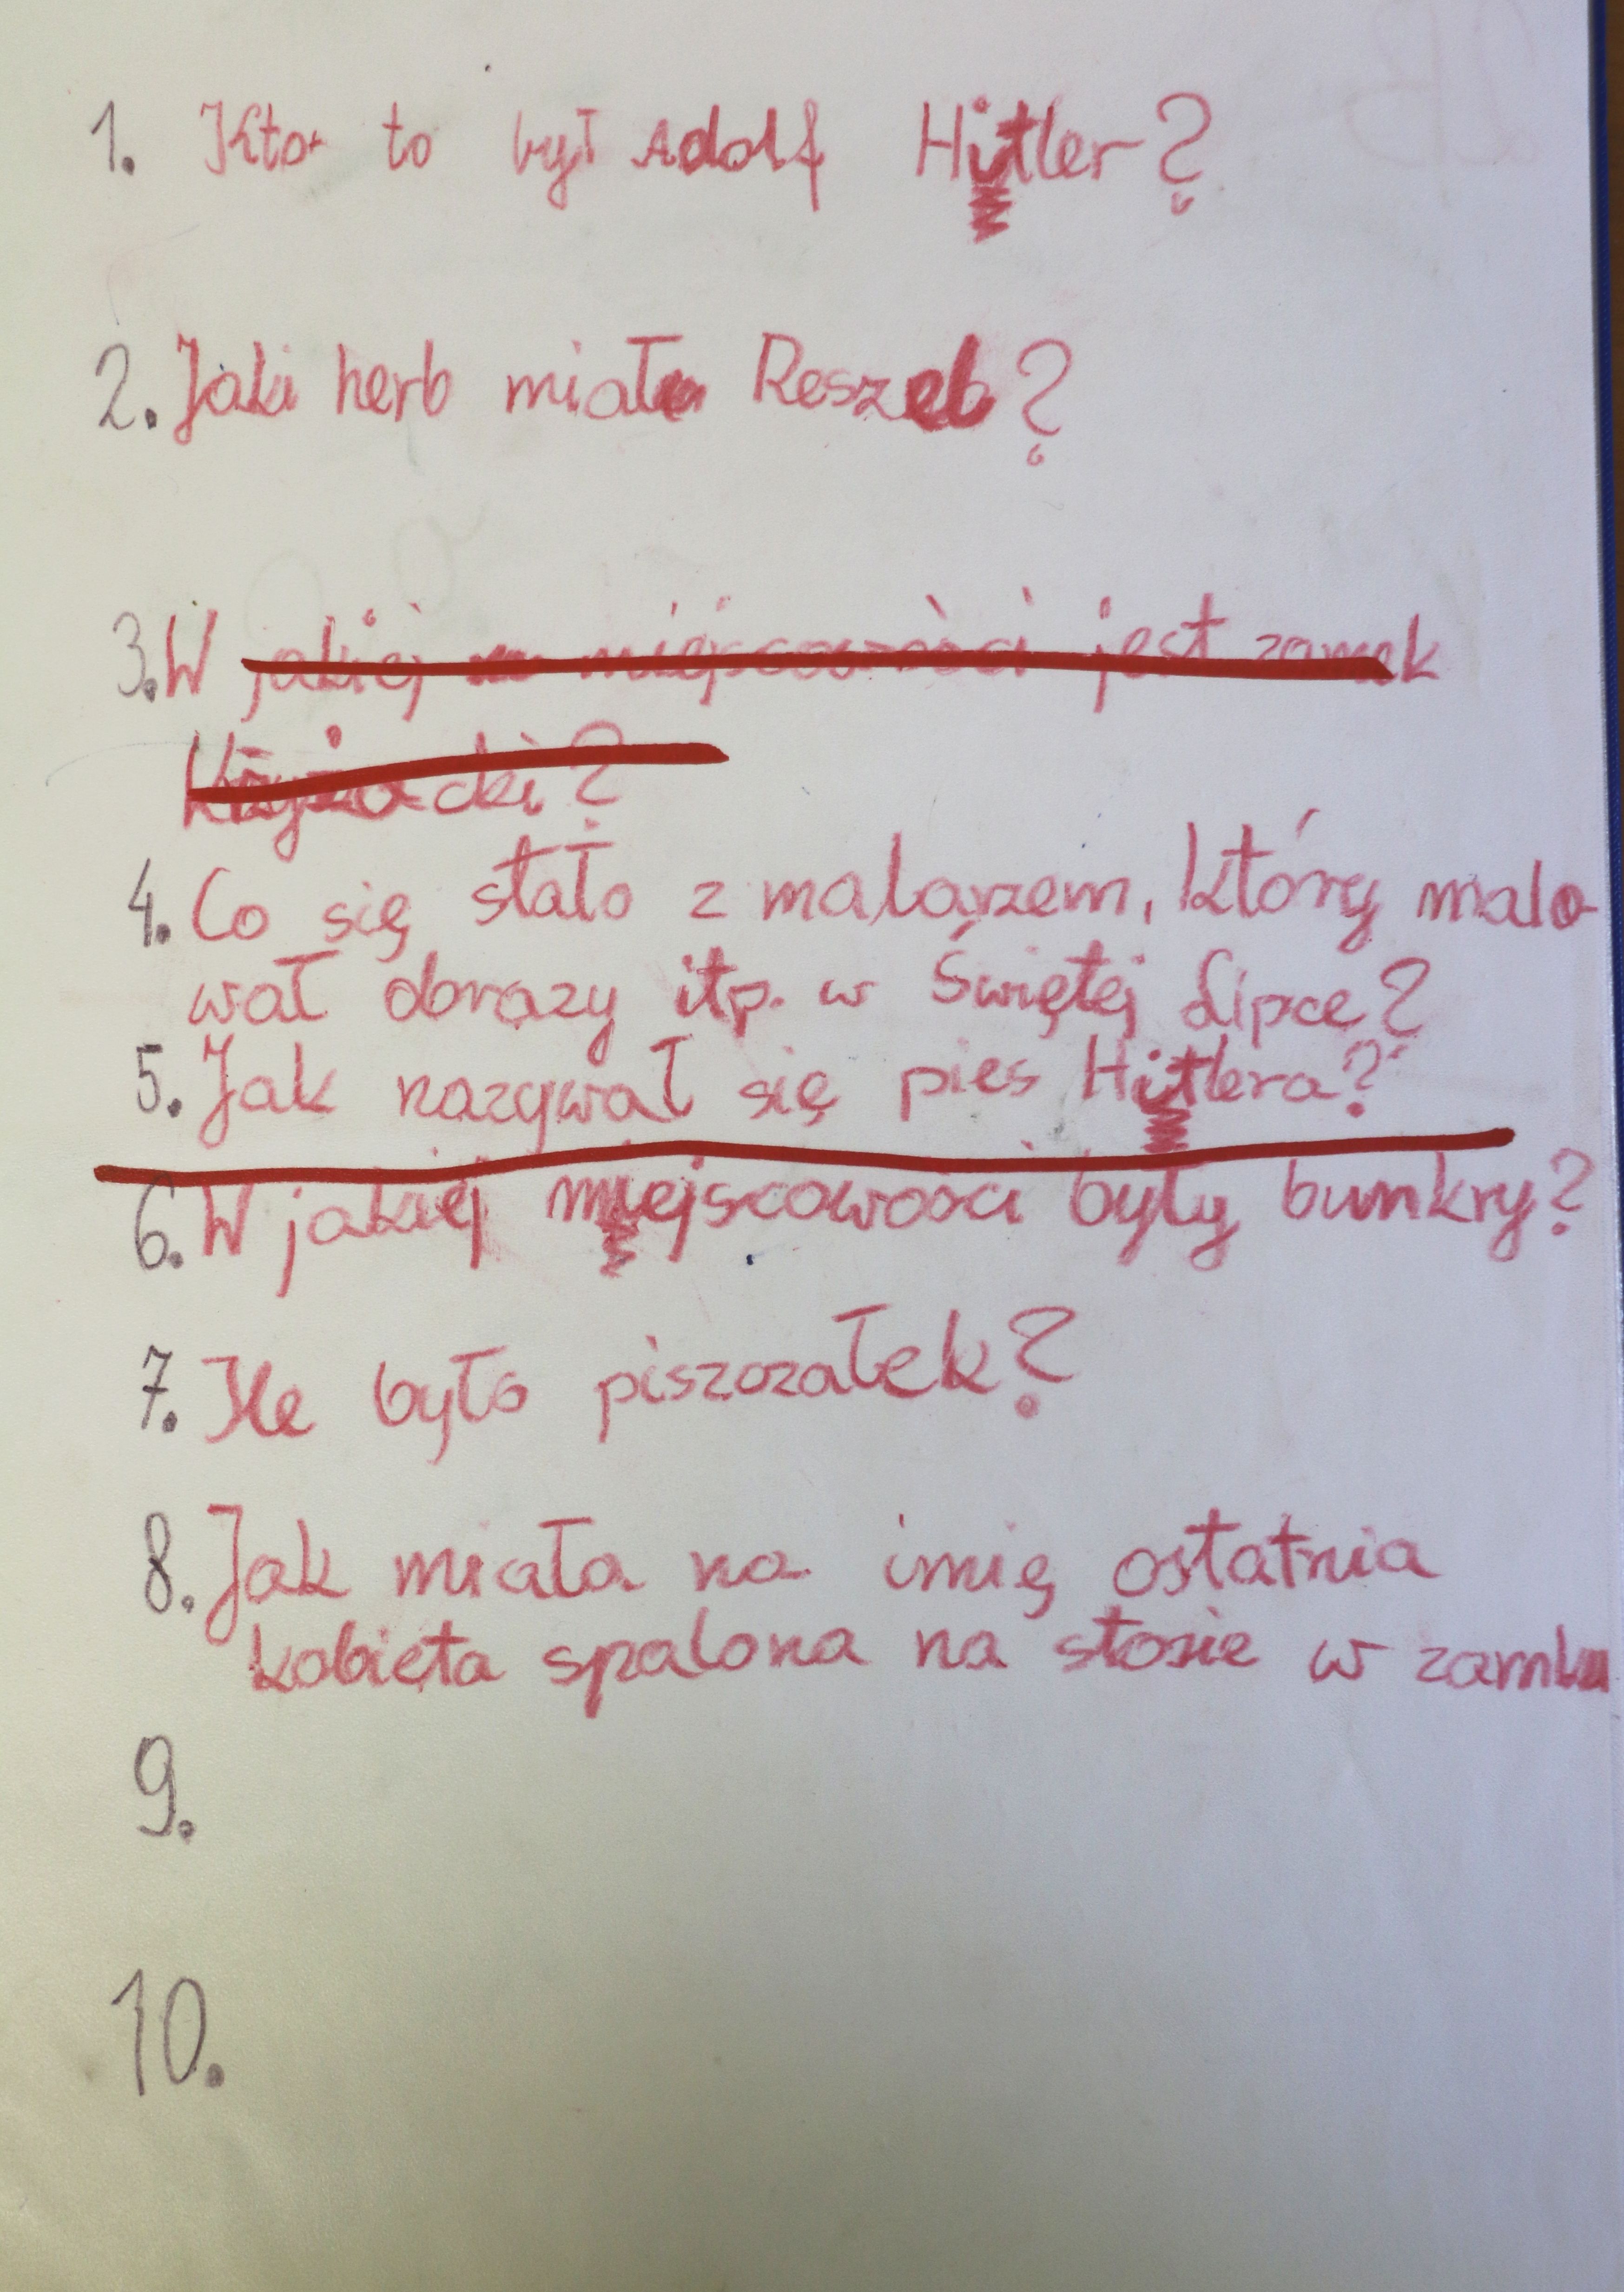 1. Kto to był Adolf Hitler?
2. Jaki herb miał Reszel?
3. W jakiej miejscowości jest zamek
Krzyżacki?
4. Co się stało z malarzem, który malo
wał obrazy itp. w Świętej Lipce?
5. Jak nazywał się pies Hitlera?
6. W jakiej miejscowości były bunkry?
7. Ile było piszczałek?
8. Jak miała na imię ostatnia
kobieta spalona na stosie w zamku
9.
10.